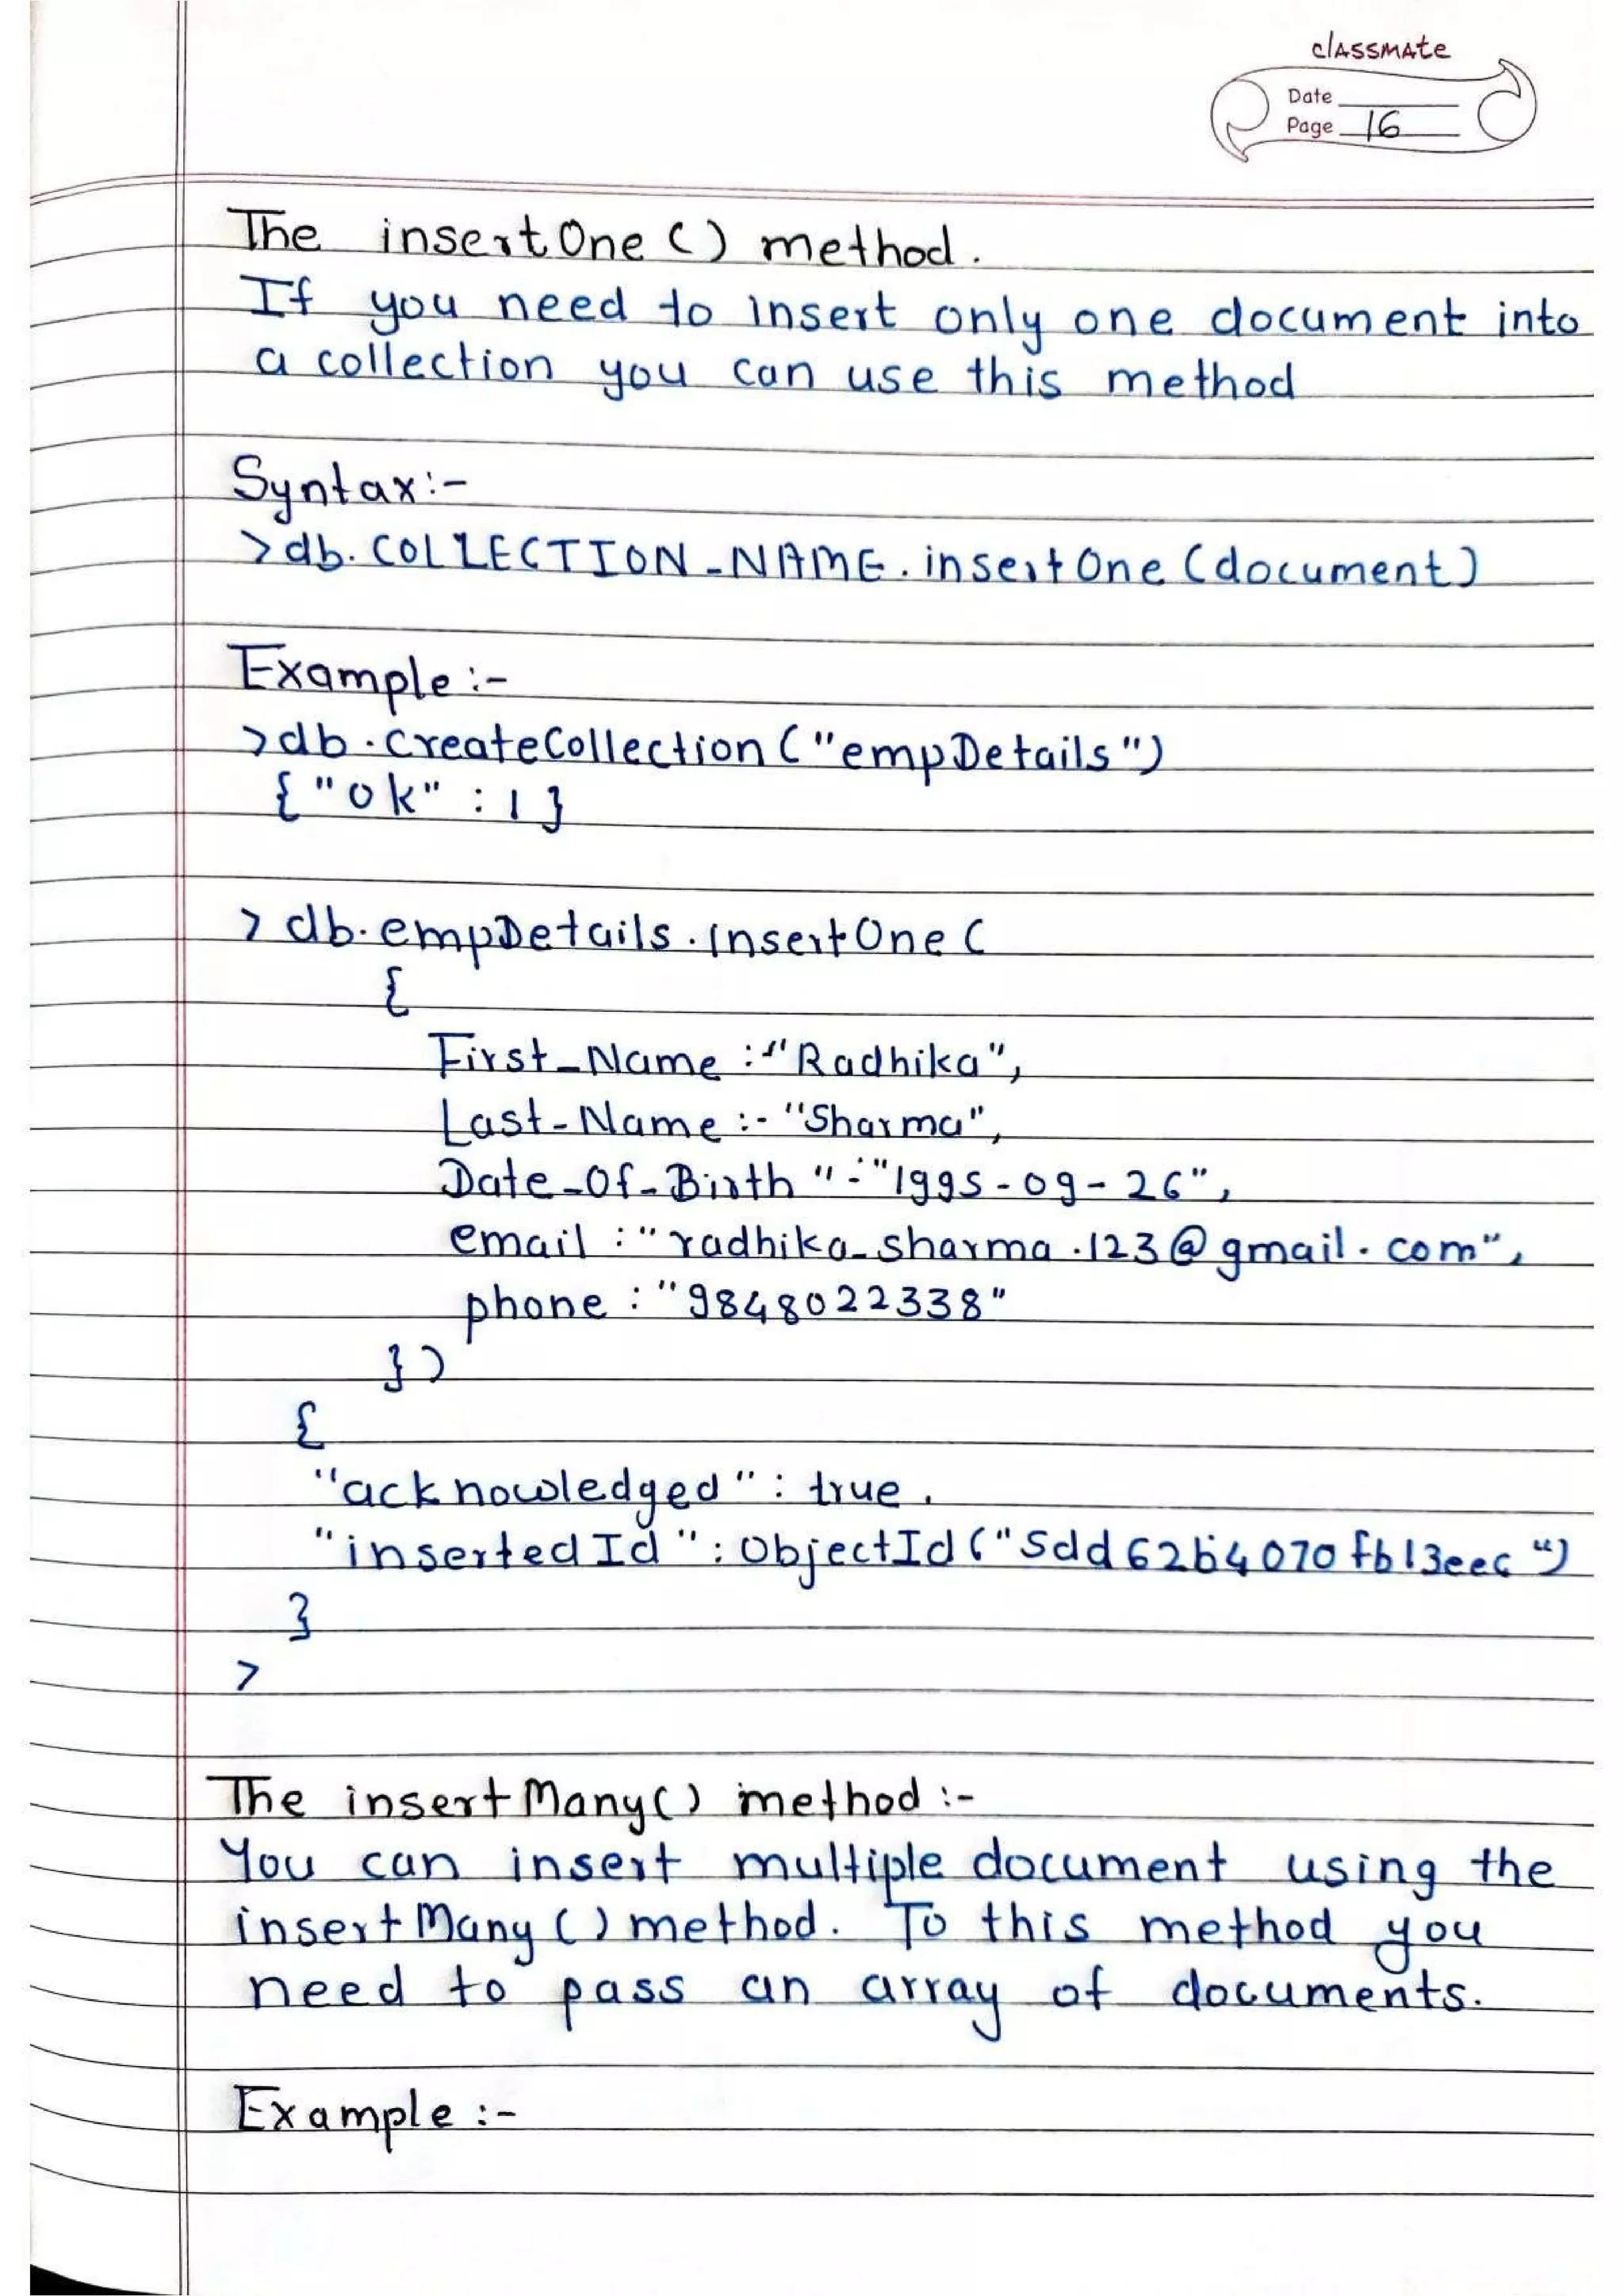 classmate
Date
Page 16
The insertOne () method.
If you need to insert only one document into
a collection you can use this method
Syntax:-
>db.COLLECTION_NAME.insertOne (document)
Example :-
>db.createCollection ("empDetails")
{"ok" : 1}
> db.empDetails.insertOne (
{
First_Name :-"Radhika",
Last-Name :- "Sharma",
Date_Of_Birth " :- "1995-09-26",
email : "radhika_sharma.123@gmail.com",
phone : "9848022338"
})
{
"acknowledged" : true.
"insertedId" : ObjectId ("5dd62b4070fb13eec")
}
>
The insertMany() method :-
You can insert multiple document using the
insertMany () method. To this method you
need to pass an array of documents.
Example :-